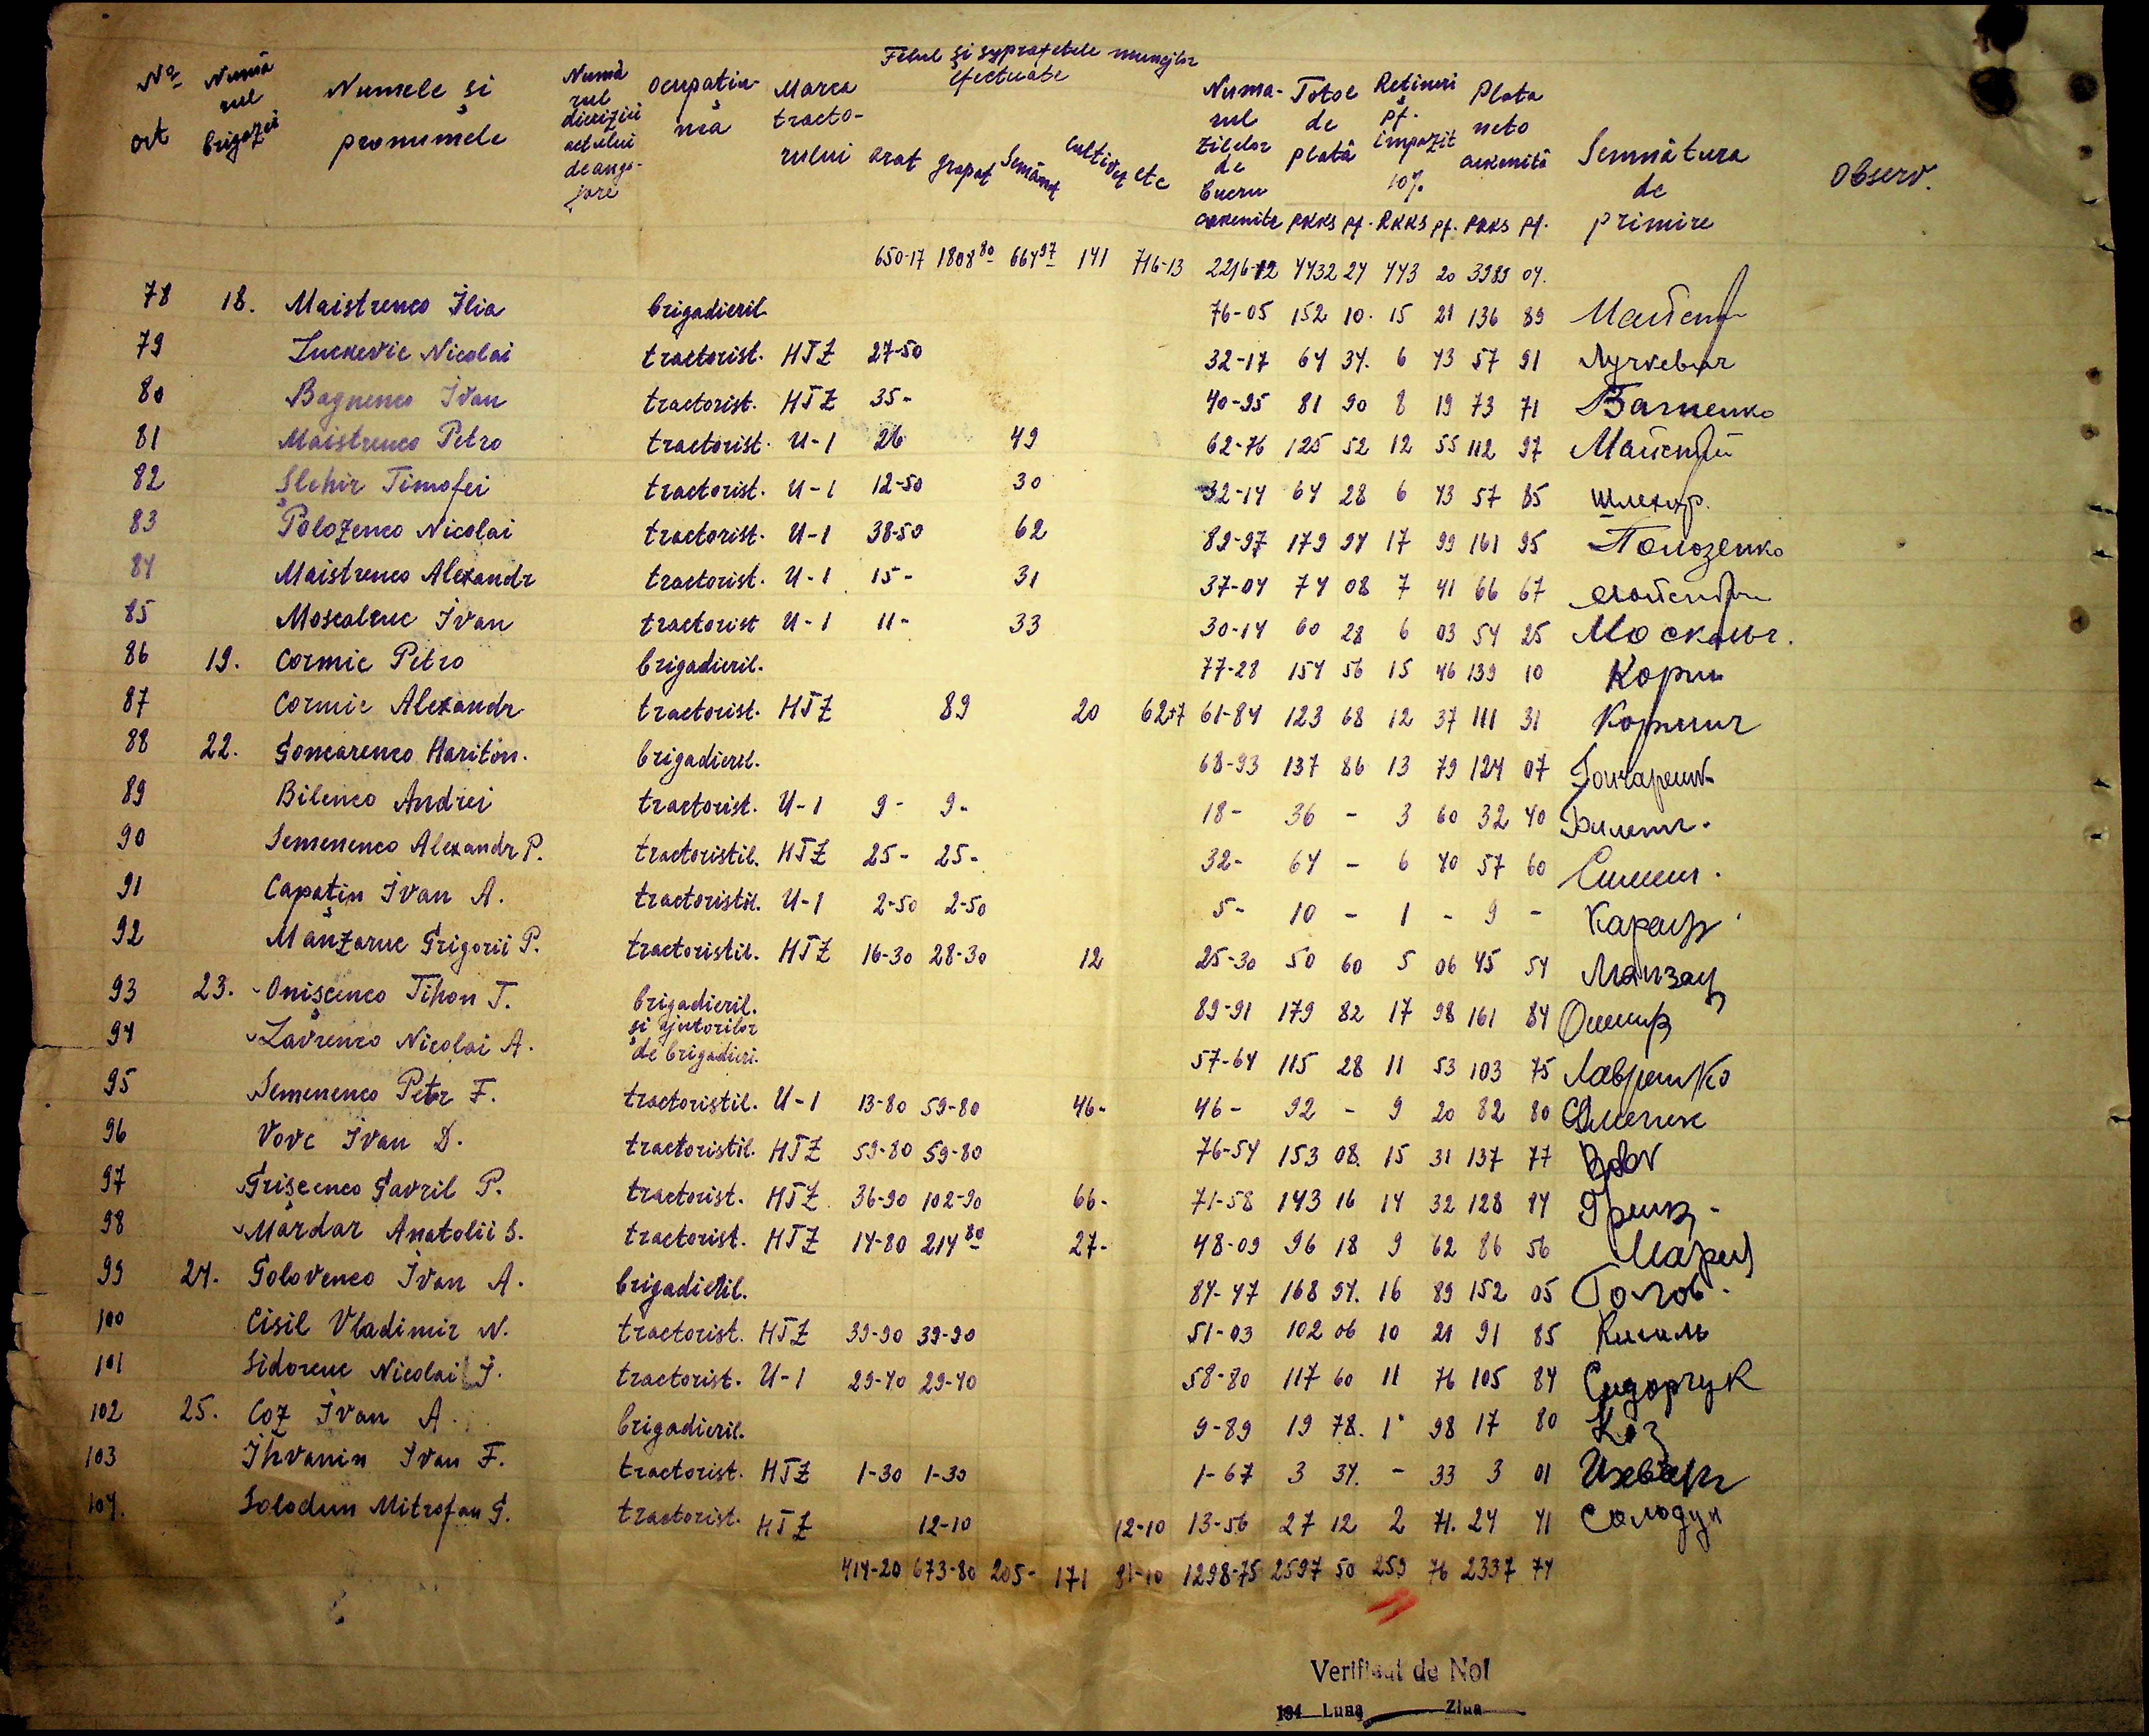 Felul și suprafetele muncilor efectuate
No ort Numărul brigazei Numele și pronumele Numărul deciziei actului de angajare Ocupația mea Marca tractorului arat grapat Semănat Cultivat etc Numarul zilelor de lucru Total de plată Rețineri pt. impozit 10% Plata neto Semnătura de primire Observ.
RKKS pf. RKKS pf. RKKS pf.
650-17 1808 80 664 97 141 716-13 2216-12 4432 24 443 20 3989 04.
78 18. Maistrenco Ilia brigadieril. 76-05 152 10. 15 21 136 89
79 Luckevic Nicolai tractorist. HTZ 27-50 32-17 64 34. 6 43 57 91 Луцкевич
80 Bagnenco Ivan tractorist. HTZ 35- 40-95 81 90 8 19 73 71 Багненко
81 Maistrenco Petro tractorist. U-1 26 49 62-76 125 52 12 55 112 97
82 Șlehir Timofei tractorist. U-1 12-50 30 32-14 64 28 6 43 57 85 Шлехир.
83 Polozenco Nicolai tractorist. U-1 38-50 62 89-97 179 94 17 99 161 95 Полозенко
84 Maistrenco Alexandr tractorist. U-1 15- 31 37-04 74 08 7 41 66 67
85 Moscalciuc Ivan tractorist U-1 11- 33 30-14 60 28 6 03 54 25
86 19. Cormic Petro brigadieril. 77-28 154 56 15 46 139 10
87 Cormic Alexandr tractorist. HTZ 89 20 62+7 61-84 123 68 12 37 111 31 Кормич
88 22. Goncarenco Hariton. brigadieril. 68-93 137 86 13 79 124 07
89 Bilenco Andrei tractorist. U-1 9- 9- 18- 36 - 3 60 32 40
90 Semenenco Alexandr P. tractoristil. HTZ 25- 25- 32- 64 - 6 40 57 60
91 Capațin Ivan A. tractoristil. U-1 2-50 2-50 5- 10 - 1 - 9 -
92 Manzaruc Grigorii P. tractoristil. HTZ 16-30 28-30 12 25-30 50 60 5 06 45 54
93 23. Onișcenco Tihon T. brigadieril. 89-91 179 82 17 98 161 84
94 Lavrenco Nicolai A. și ajutorilor de brigadieri. 57-64 115 28 11 53 103 75 Лавренко
95 Semenenco Petr F. tractoristil. U-1 13-80 59-80 46- 46- 92 - 9 20 82 80
96 Vovc Ivan D. tractoristil. HTZ 59-80 59-80 76-54 153 08. 15 31 137 77
97 Grișcenco Gavril P. tractorist. HTZ 36-90 102-90 66- 71-58 143 16 14 32 128 84
98 Mărdar Anatolii S. tractorist. HTZ 14-80 214 80 27- 48-09 96 18 9 62 86 56
99 24. Golovenco Ivan A. brigadieril. 84-47 168 94. 16 89 152 05 Голов.
100 Cisil Vladimir N. tractorist. HTZ 39-90 39-90 51-03 102 06 10 21 91 85 Кисиль
101 Sidorcuc Nicolai I. tractorist. U-1 29-40 29-40 58-80 117 60 11 76 105 84 Сидорчук
102 25. Coz Ivan A. brigadieril. 9-89 19 78. 1 98 17 80 Коз
103 Ihvanin Ivan F. tractorist. HTZ 1-30 1-30 1-67 3 34. - 33 3 01
104. Solodun Mitrofan G. tractorist. HTZ 12-10 12-10 13-56 27 12 2 71. 24 41 Солодун
414-20 673-80 205- 171 81-10 1298-75 2597 50 259 76 2337 74
Verificat de Noi
194 Luna Ziua